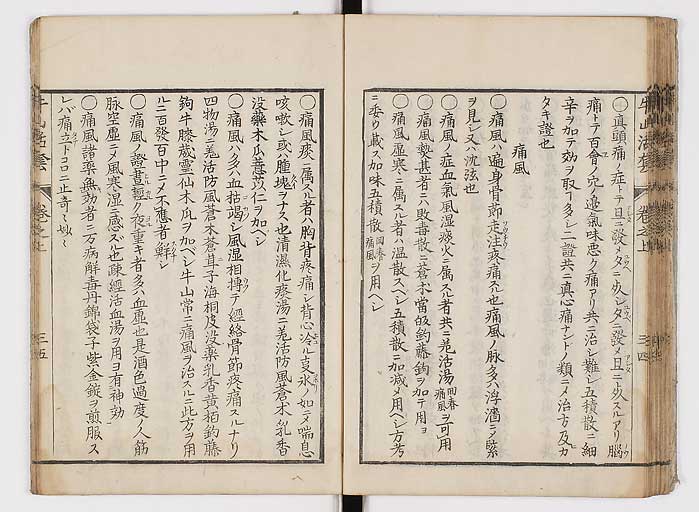 〇真頭痛ノ症トテ旦ニ發メタニ死シタニ發メ旦ニ死スルアリ腦
痛トテ百會ノ穴ノ邉氣味悪ク痛アリ共ニ治シ難シ五積散ニ細
辛ヲ加テ効ヲ取ルヿ多シ二證共ニ真心痛ナントノ類ニメ治方及カ
タキ證也
痛風
〇痛風ハ遍身骨節走注疼痛スル也痛風ノ脉多クハ浮濇ニメ緊
ヲ見シ又ハ沈弦也
〇痛風ノ症血氣風湿痰火ニ属スル者共ニ羌活湯回春痛風ヲ可用
〇痛風勢甚者ニハ敗毒散ニ蒼朮當皈鈎藤鉤ヲ加テ用ヨ
〇痛風湿寒ニ属スル者ハ温散スベシ五積散ニ加减メ用ベシ方考
ニ委ク載ス加味五積散回春痛風ヲ用ベシ
牛山活套
卷之上
三四
〇痛風痰ニ属スル者ハ胸背疼痛シ背心冷ル支氷ノ如テ喘息
咳嗽シ或ハ腫塊ヲナス也清濕化痰湯ニ羌活防風蒼朮乳香
没藥木瓜薏苡仁ヲ加ベシ
〇痛風ハ多クハ血枯渇シ風湿相摶テ經絡骨節疼痛スルナリ
四物湯ニ羌活防風蒼朮蒼耳子海桐皮没藥乳香黄栢鈎藤
鉤牛膝葳靈仙木瓜ヲ加ベシ牛山常ニ痛風ヲ治スルニ此方ヲ用
ルニ百發百中ニメ不應者鮮シ
〇痛風ノ證晝輕ク夜重キ者多クハ血虚也是酒色過度ノ人筋
脉空虚ニメ風寒湿ニ感スル也疎經活血湯ヲ用ヨ有神効
〇痛風諸藥無効者ニ万病解毒丹錦袋子紫金錠ヲ煎服ス
レバ痛立トコロニ止奇々妙々
牛山活套
卷之上
三五